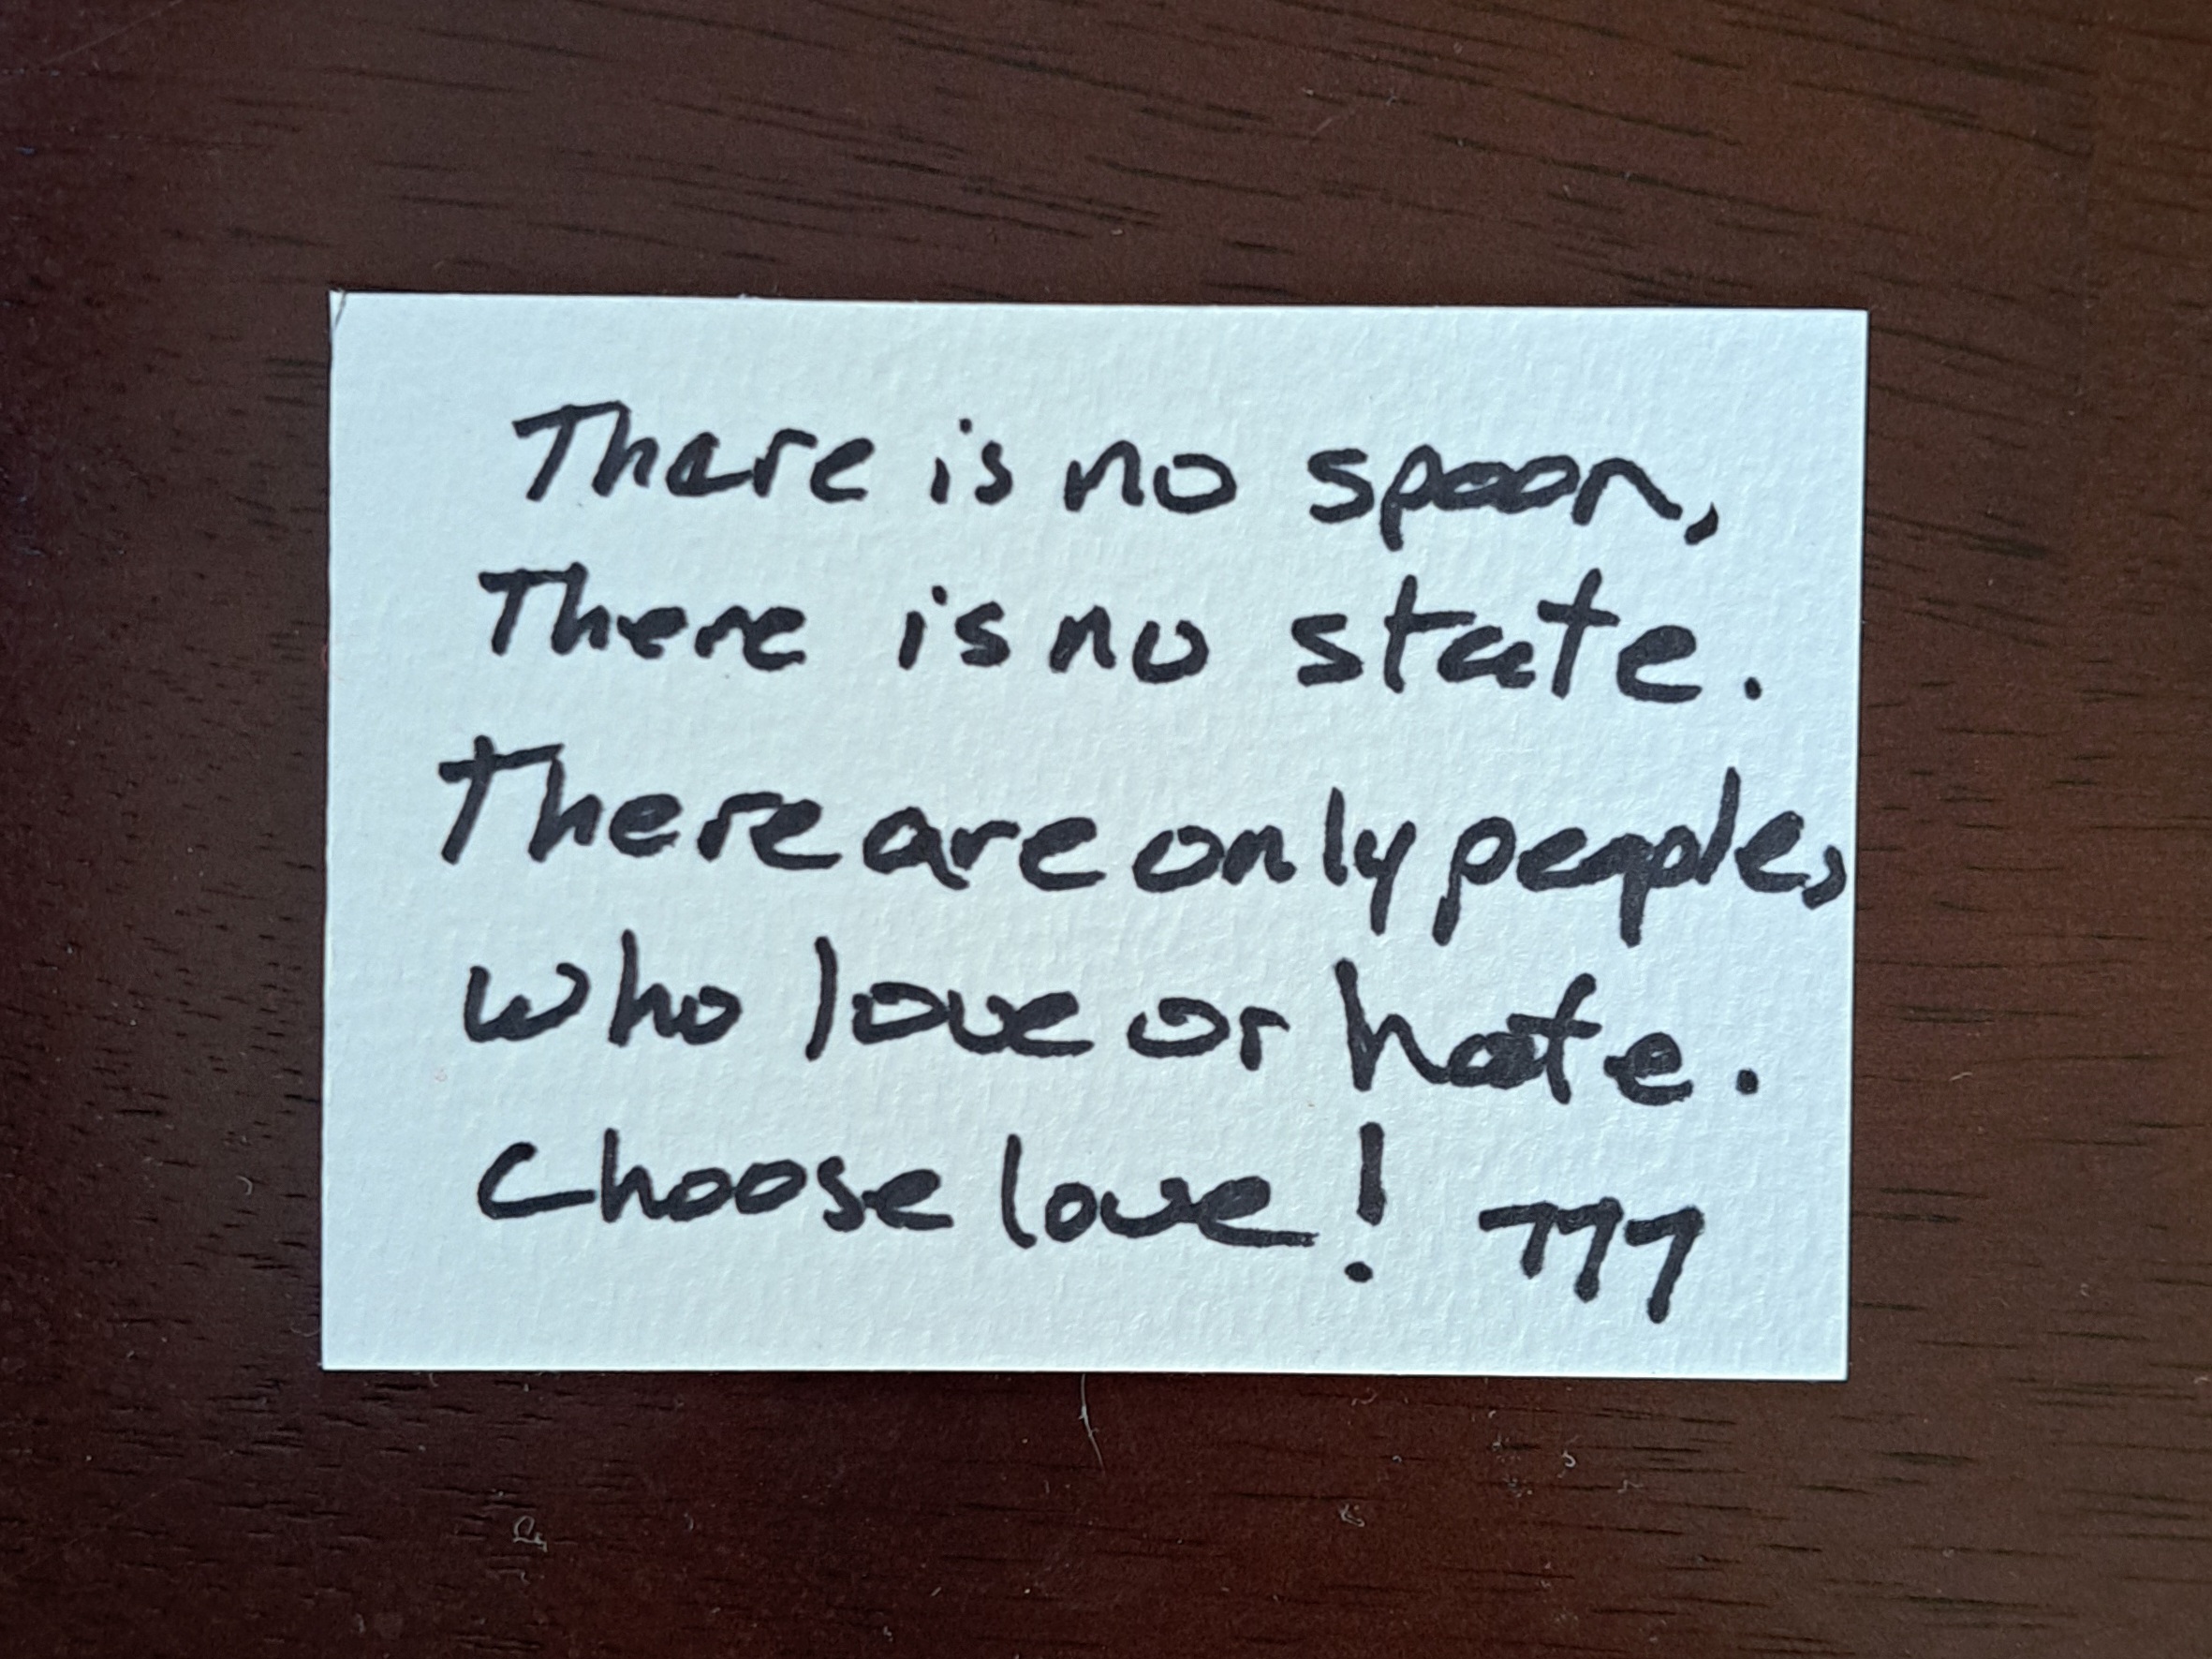 There is no spoon,
There is no state.
There are only people,
who love or hate.
Choose love! 777